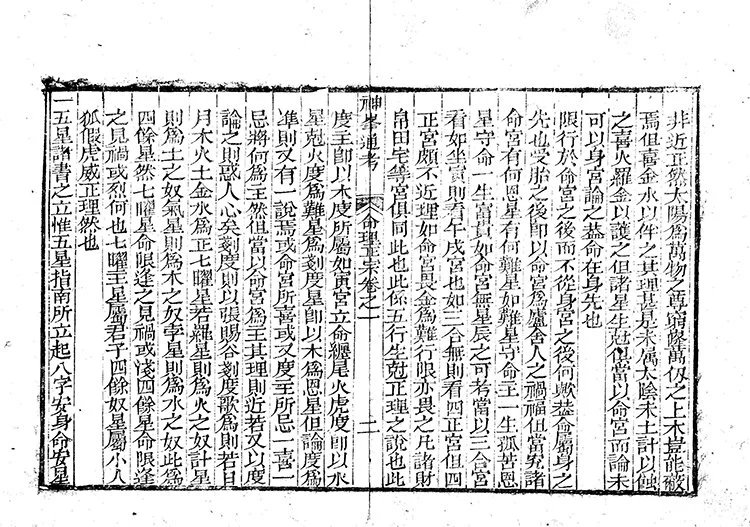 非近正然太陽爲萬物之尊窮蔭萬仭之上木豈能蔽
焉但喜金水以伴之其理甚是未偶太陰未土計以蝕
之喜火羅金以護之但諸星生尅俱當以命宮而論未
可以身宮論之葢命在身先也
限行於命宮之後而不從身宮之後何歟葢命屬身之
先也受胎之後即以命宮爲廬舍人之禍福但當究諸
命宮有何恩星有何難星如難星守命主一生孤苦恩
星守命一生富貴如命宮無星辰之可考當以三合宮
看如坐寅則看午戌宮也如三合無則看四正宮但四
正宮頗不近理如命宮畏金爲難行限亦畏之凡諸財
帛田宅等宮俱同此也此係五行生尅正理之說也此
神峯通考 命理正宗卷之一 二
度主即以木度所屬如寅宮立命纏尾火虎度即以水
星尅火度爲難星爲刻度星即以木爲恩星但論度爲
準則又有一說焉或命宮所喜或又度主所忌一喜一
忌將何爲主然但當以命宮爲主其理則近若又以度
論之則惑人心矣刻度則以張賜谷刻度歌爲則若日
月木火土金水爲正七曜星若羅星則爲火之奴計星
則爲土之奴氣星則爲木之奴孛星則爲水之奴此爲
四餘星然七曜星命限逢之見禍或淺四餘星命限逢
之見禍或烈何也七曜主星屬君子四餘奴星屬小人
狐假虎威正理然也
一五星諸書之立惟五星指南所立起八字安身命安星